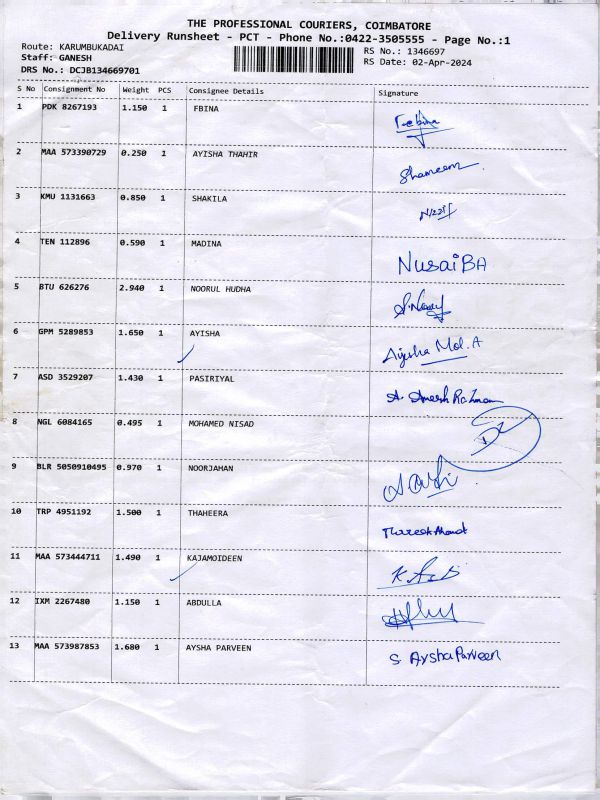 THE PROFESSIONAL COURIERS, COIMBATORE
Delivery Runsheet - PCT - Phone No.:0422-3505555 - Page No.:1
Route: KARUMBUKADAI RS No.: 1346697
Staff: GANESH RS Date: 02-Apr-2024
DRS No.: DCJB134669701
S No Consignment No Weight PCS Consignee Details Signature
1 PDK 8267193 1.150 1 FBINA Febina
2 MAA 573390729 0.250 1 AYISHA THAHIR Shameem
3 KMU 1131663 0.850 1 SHAKILA
4 TEN 112896 0.590 1 MADINA NusaiBA
5 BTU 626276 2.940 1 NOORUL HUDHA
6 GPM 5289853 1.650 1 AYISHA Aiysha Mol.A
7 ASD 3529207 1.430 1 PASIRIYAL
8 NGL 6084165 0.495 1 MOHAMED NISAD
9 BLR 5050910495 0.970 1 NOORJAHAN
10 TRP 4951192 1.500 1 THAHEERA
11 MAA 573444711 1.490 1 KAJAMOIDEEN
12 IXM 2267480 1.150 1 ABDULLA
13 MAA 573987853 1.680 1 AYSHA PARVEEN S. AyshaParveen